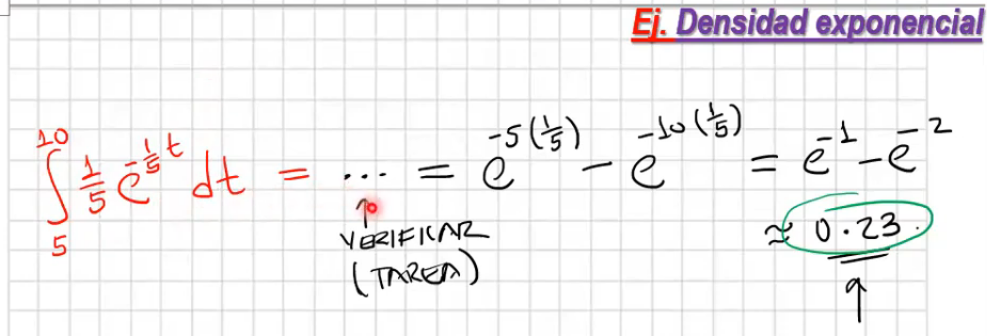 Ej. Densidad exponencial
∫₅¹⁰ 1/5 e^(-1/5 t) dt = ... = e^(-5(1/5)) - e^(-10(1/5)) = e^(-1) - e^(-2)
≈ 0.23
↑
VERIFICAR
(TAREA)
↑